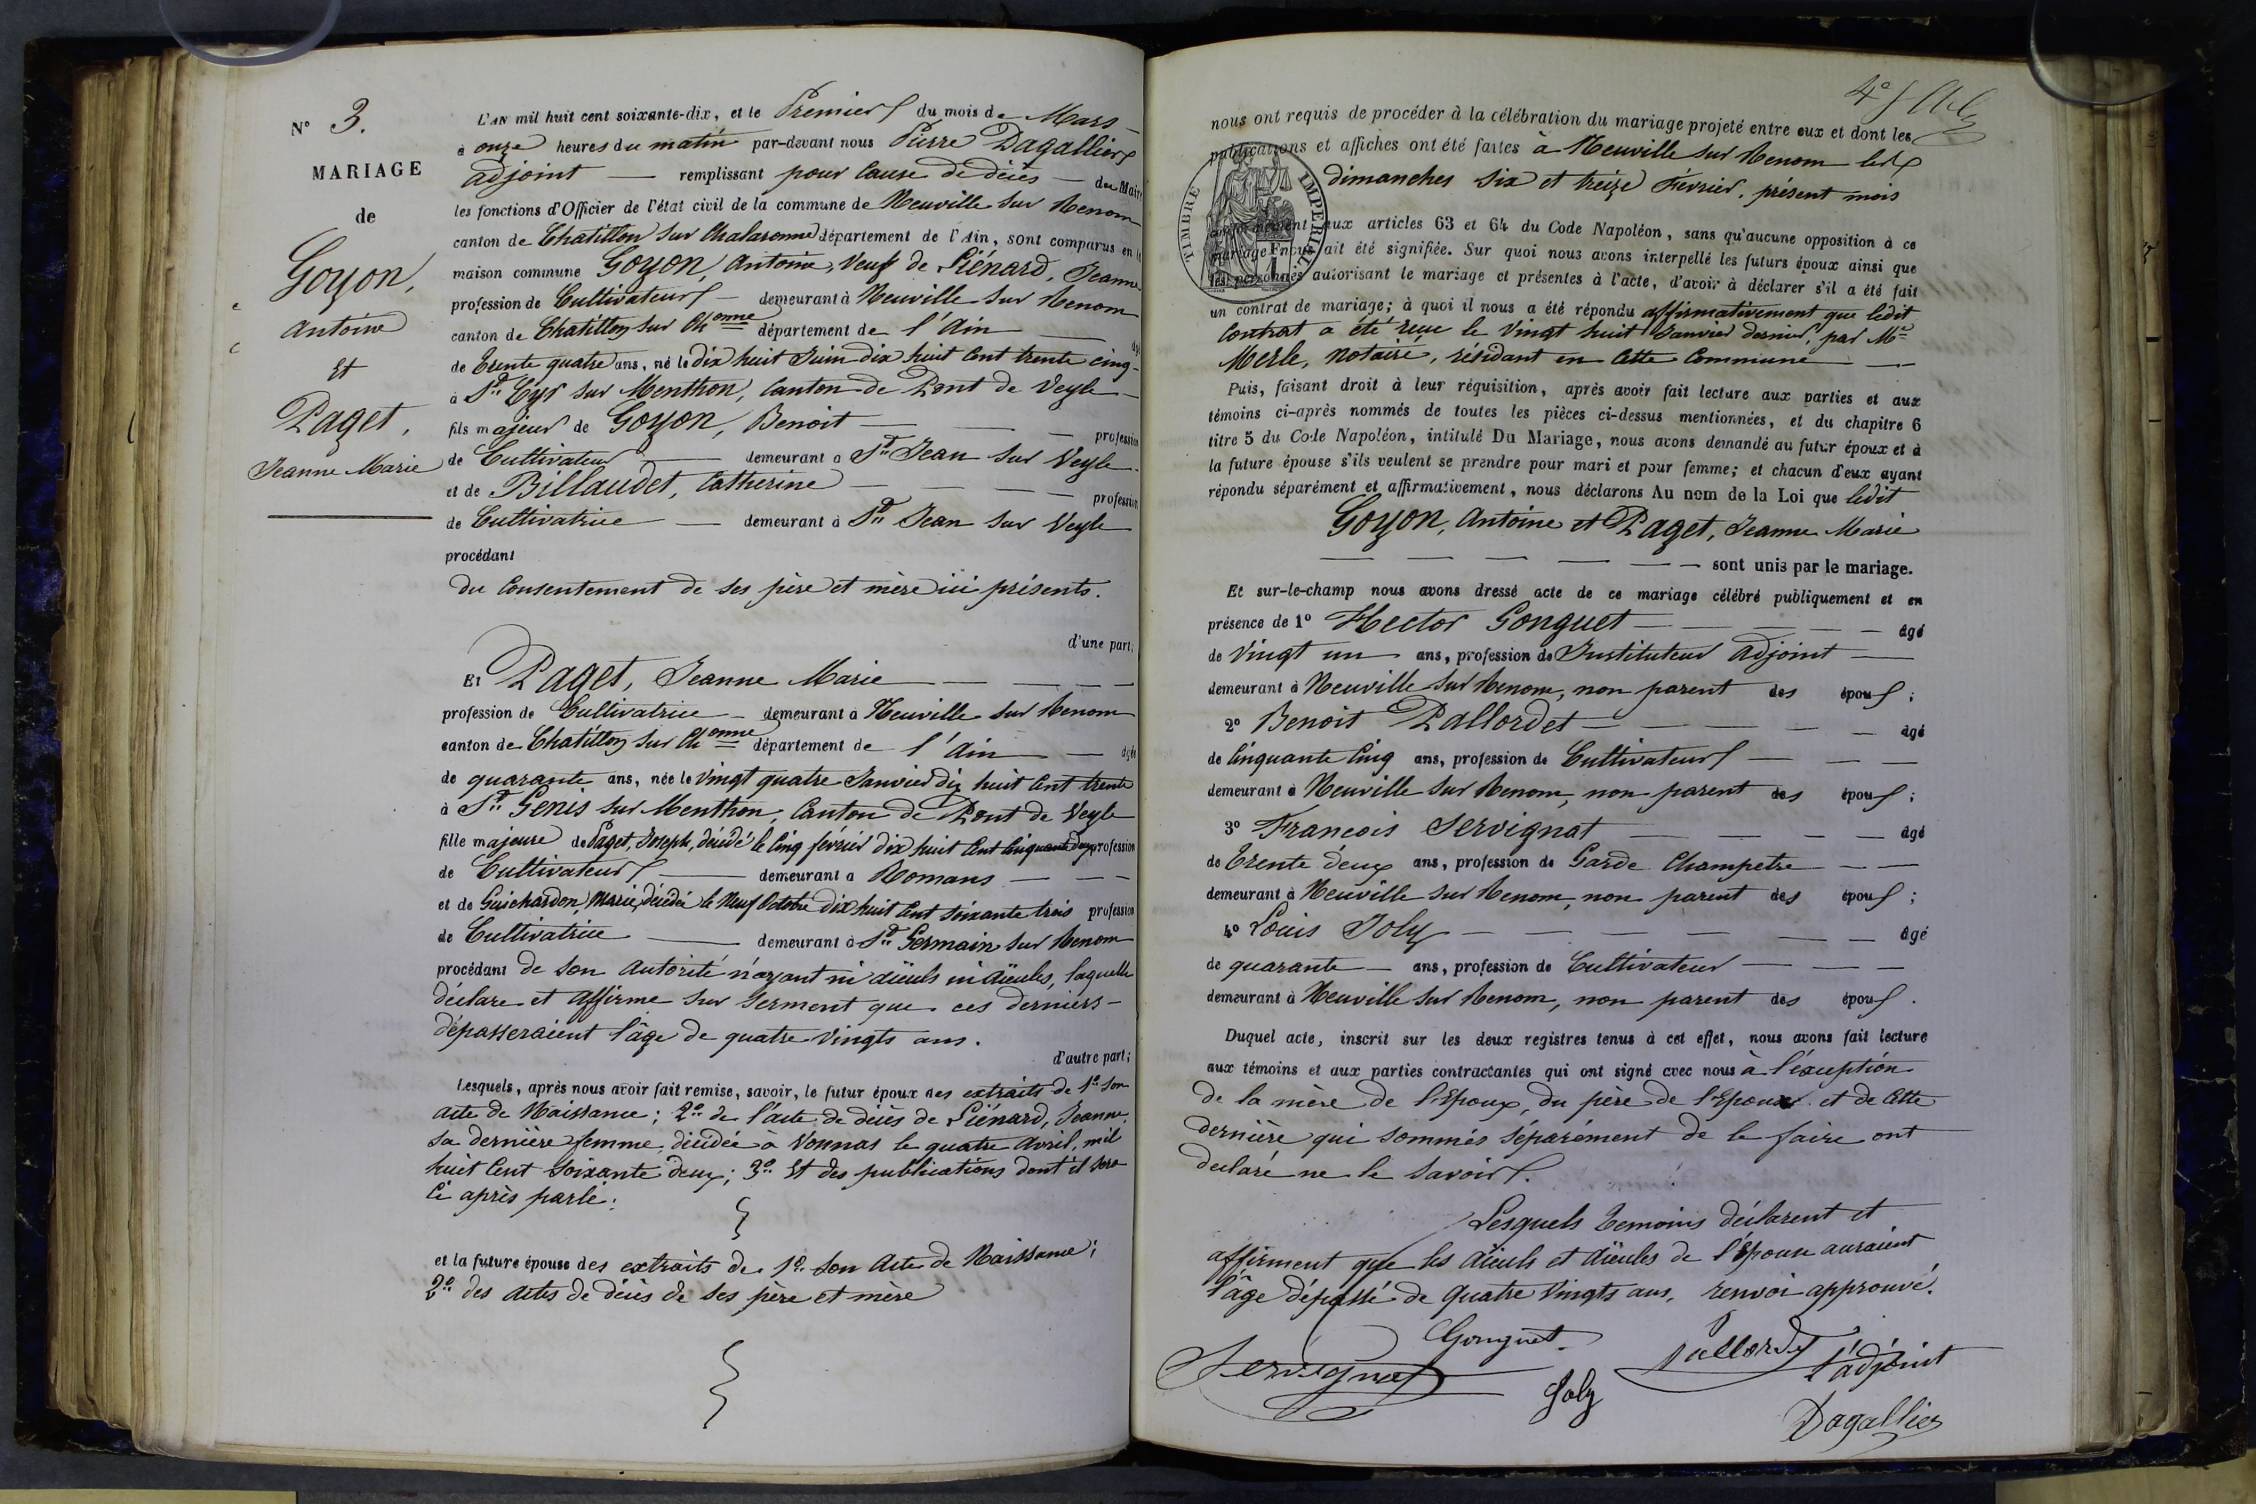 N° 3.
MARIAGE
de
Goyon,
Antoine
Et
Paget,
Jeanne Marie
L'AN mil huit cent soixante-dix, et le Premier du mois de Mars
à onze heures du matin par-devant nous Pierre Dagallier
adjoint remplissant pour Cause de décès du Maire
les fonctions d'Officier de l'état civil de la commune de Neuville sur Renom
canton de Chatillon sur Chalaronne département de l'Ain, sont comparus en la
maison commune Goyon, Antoine, Veuf de Liénard, Jeanne
profession de Cultivateur demeurant à Neuville sur Renom
canton de Chatillon sur Ch onne département de l'Ain âgé
de trente quatre ans, né le dix huit Juin dix huit Cent trente cinq
à St Cyr sur Menthon, Canton de Pont de Veyle
fils majeur de Goyon, Benoit profession
de Cultivateur demeurant à St Jean sur Veyle
et de Billaudet, Catherine profession
de Cultivatrice demeurant à St Jean sur Veyle
procédant
du Consentement de ses père et mère ici présents.
d'une part;
Et Paget, Jeanne Marie
profession de Cultivatrice demeurant à Neuville sur Renom
canton de Chatillon sur Ch onne département de l'Ain âgée
de quarante ans, née le Vingt quatre Janvier dix huit Cent trente
à St Genis sur Menthon, Canton de Pont de Veyle
fille majeure de Paget, Joseph, décédé le Cinq février dix huit Cent Cinquante deux profession
de Cultivateur demeurant à Romans
et de Guichardon, Marie, décédée le Neuf Octobre Dix huit Cent Soixante trois profession
de Cultivatrice demeurant à St Germain sur Renom
procédant de son Autorité n'ayant ni aïeuls ni aïeules, laquelle
déclare et affirme sur Serment que ces derniers
dépasseraient l'âge de quatre Vingts ans.
d'autre part;
Lesquels, après nous avoir fait remise, savoir, le futur époux des extraits de 1° Son
acte de Naissance; 2° de l'acte de décès de Liénard, Jeanne,
sa dernière femme, décédée à Vonnas le quatre Avril, mil
huit Cent Soixante deux; 3° Et des publications dont il sera
Ci après parlé:
et la future épouse des extraits de 1° Son Acte de Naissance;
2° des Actes de décès de ses père et mère
4e
nous ont requis de procéder à la célébration du mariage projeté entre eux et dont les
publications et affiches ont été faites à Neuville sur Renom les
dimanches Six et treize Février, présent mois
TIMBRE IMPERIAL
conformément aux articles 63 et 64 du Code Napoléon, sans qu'aucune opposition à ce
mariage Encus ait été signifiée. Sur quoi nous avons interpellé les futurs époux ainsi que
les personnes autorisant le mariage et présentes à l'acte, d'avoir à déclarer s'il a été fait
un contrat de mariage; à quoi il nous a été répondu affirmativement que ledit
Contrat a été reçu le Vingt huit Janvier dernier, par Me
Merle, notaire, résidant en Cette Commune
Puis, faisant droit à leur réquisition, après avoir fait lecture aux parties et aux
témoins ci-après nommés de toutes les pièces ci-dessus mentionnées, et du chapitre 6
titre 5 du Code Napoléon, intitulé Du Mariage, nous avons demandé au futur époux et à
la future épouse s'ils veulent se prendre pour mari et pour femme; et chacun d'eux ayant
répondu séparément et affirmativement, nous déclarons Au nom de la Loi que ledit
Goyon, Antoine et Paget, Jeanne Marie
sont unis par le mariage.
Et sur-le-champ nous avons dressé acte de ce mariage célébré publiquement et en
présence de 1° Hector Gonguet âgé
de Vingt un ans, profession de Instituteur Adjoint
demeurant à Neuville sur Renom, non parent des époux;
2° Benoit Pallordet âgé
de Cinquante Cinq ans, profession de Cultivateur
demeurant à Neuville sur Renom, non parent des époux;
3° François Servignat âgé
de trente deux ans, profession de Garde Champetre
demeurant à Neuville sur Renom, non parent des époux;
4° Louis Joly âgé
de quarante ans, profession de Cultivateur
demeurant à Neuville sur Renom, non parent des époux.
Duquel acte, inscrit sur les deux registres tenus à cet effet, nous avons fait lecture
aux témoins et aux parties contractantes qui ont signé avec nous à l'exception
de la mère de l'Epoux, du père de l'Epoux et de Cette
dernière qui sommés séparément de le faire ont
declaré ne le Savoir.
Lesquels temoins déclarent et
affirment que les aïeuls et aïeules de l'Epouse auraient
l'âge dépassé de Quatre Vingts ans, renvoi approuvé.
Gonguet
Pallordet
l'adjoint
Servignat
Joly
Dagallier